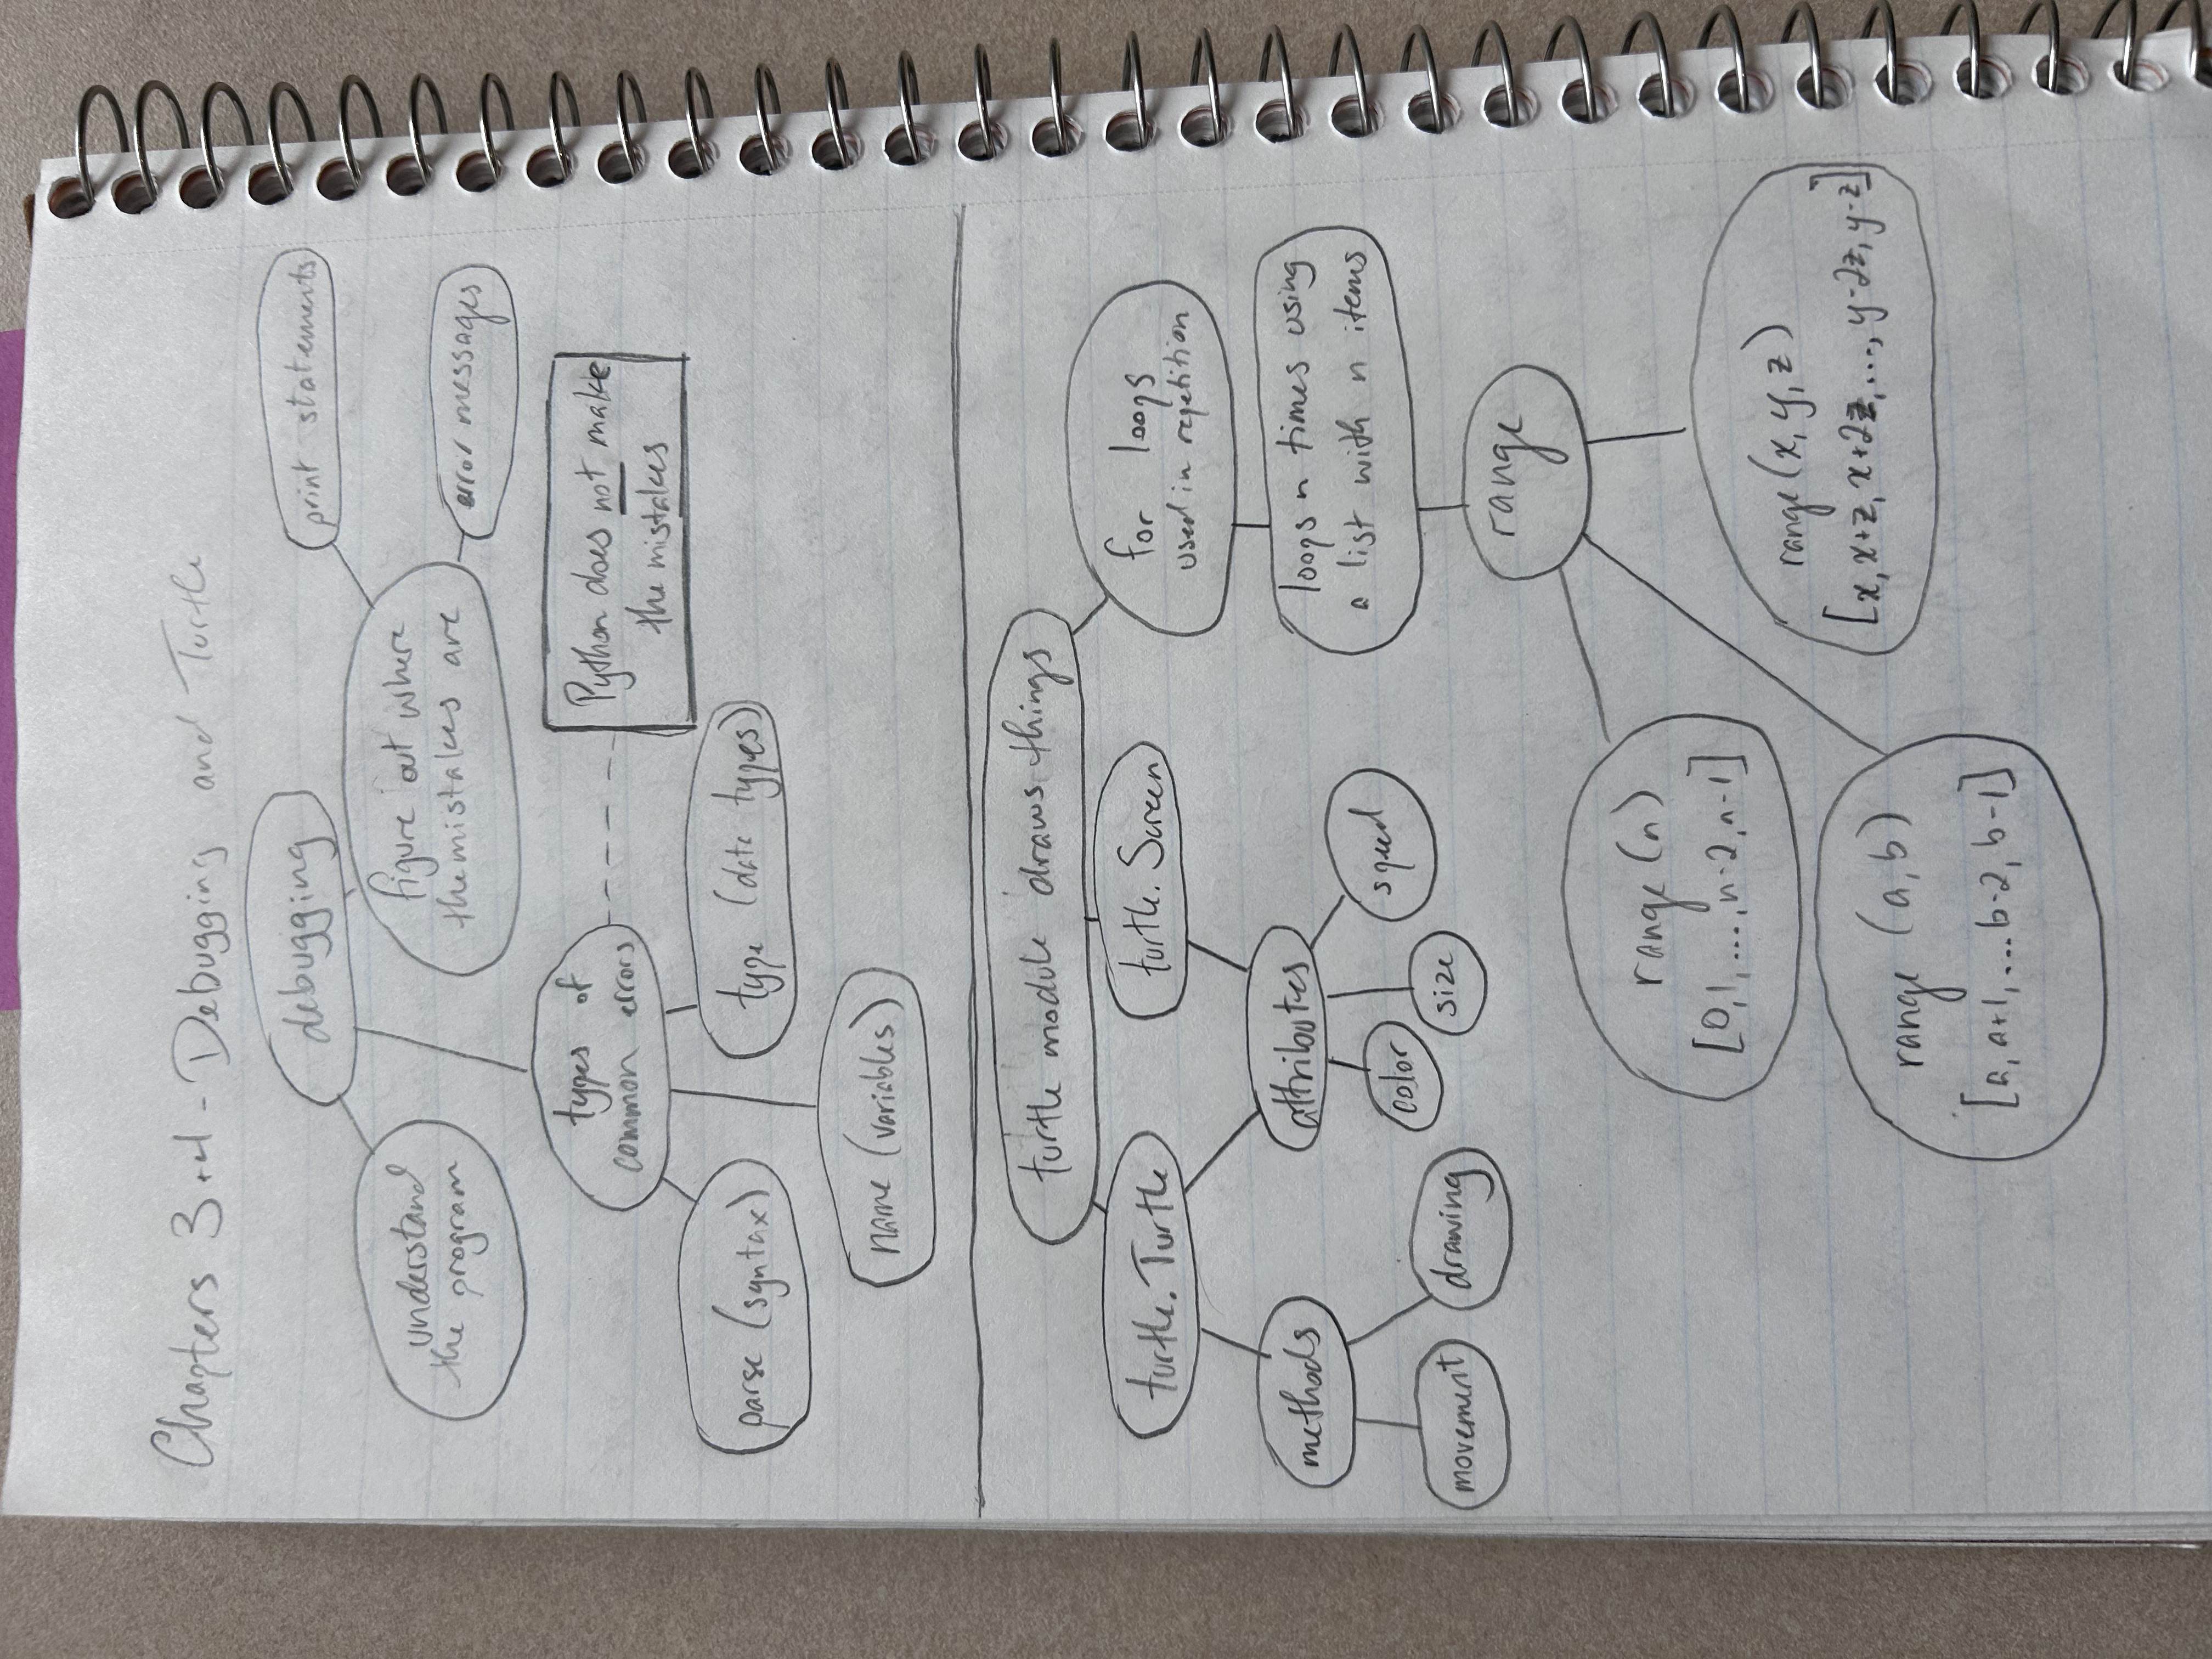 Chapters 3+4 - Debugging and Turtle
debugging
print statements
understand
the program
figure out where
the mistakes are
error messages
types of
common errors
Python does not make
the mistakes
parse (syntax)
type (data types)
name (variables)
turtle module draws things
turtle.Turtle
turtle.Screen
for loops
used in repetition
methods
attributes
loops n times using
a list with n items
color
speed
size
movement
drawing
range
range (n)
[0,1,...,n-2,n-1]
range (x, y, z)
[x, x+z, x+2z,..., y-2z, y-z]
range (a, b)
[a, a+1, ... b-2, b-1]